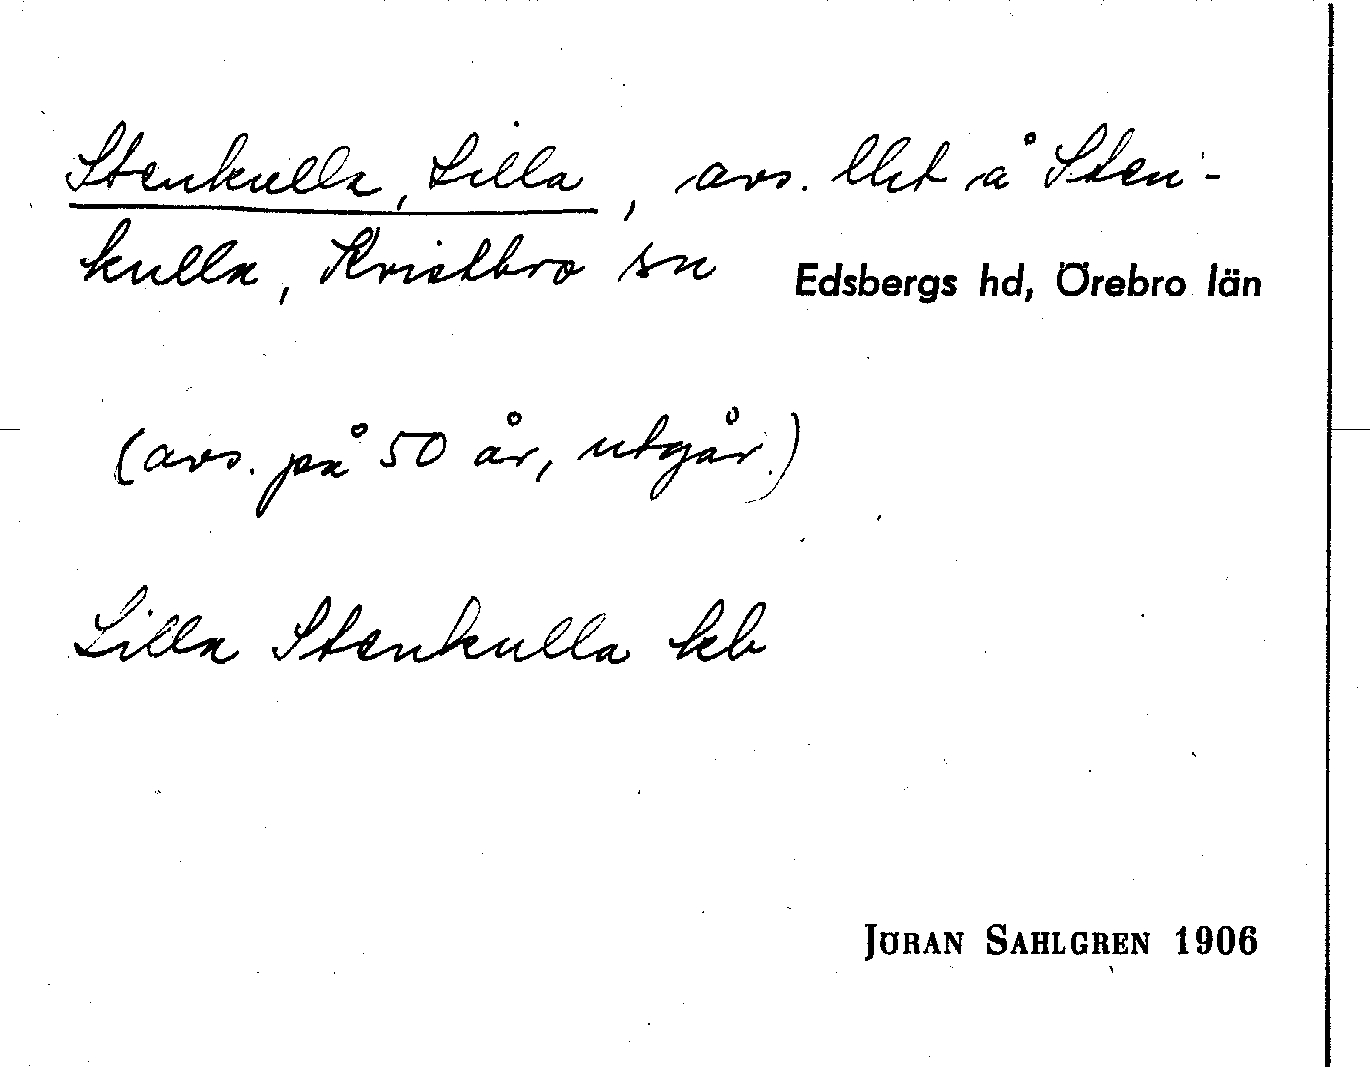 Stenkulla, Lilla, avs. llht å Sten-
kulla, Kvistbro sn Edsbergs hd, Örebro län
(avs. på 50 år, utgår.)
Lilla Stenkulla kb
JÖRAN SAHLGREN 1906